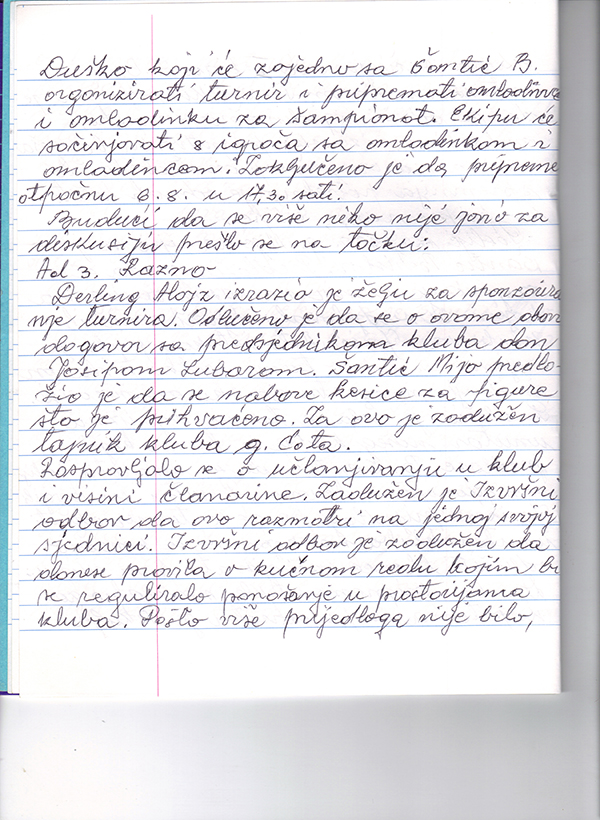 Duško koji će zajedno sa Šantić B.
organizirati turnir i pripremati omladinca
i omladinku za šampionat. Ekipu će
sačinjavati 8 igrača sa omladinkom i
omladincem. Zaključeno je da pripreme
otpočnu 6.8. u 17,30 sati.
Budući da se više neko nije javio za
diskusiju prešlo se na točku:
Ad 3. Razno
Derling Alojz izrazio je želju za sponzorira
nje turnira. Odlučeno je da se o ovome obavi
dogovor sa predsjednikoma kluba don
Josipom Lubarom. Šantić Mijo predlo-
žio je da se nabave kesice za figure
što je prihvaćeno. Za ovo je zadužen
tajnik kluba g. Cota.
Raspravljalo se o učlanjivanju u klub
i visini članarine. Zadužen je Izvršni
odbor da ovo razmotri na jednoj svojoj
sjednici. Izvršni odbor je zadužen da
donese pravila o kućnom redu kojim bi
se reguliralo ponašanje u prostorijama
kluba. Pošto više prijedloga nije bilo,